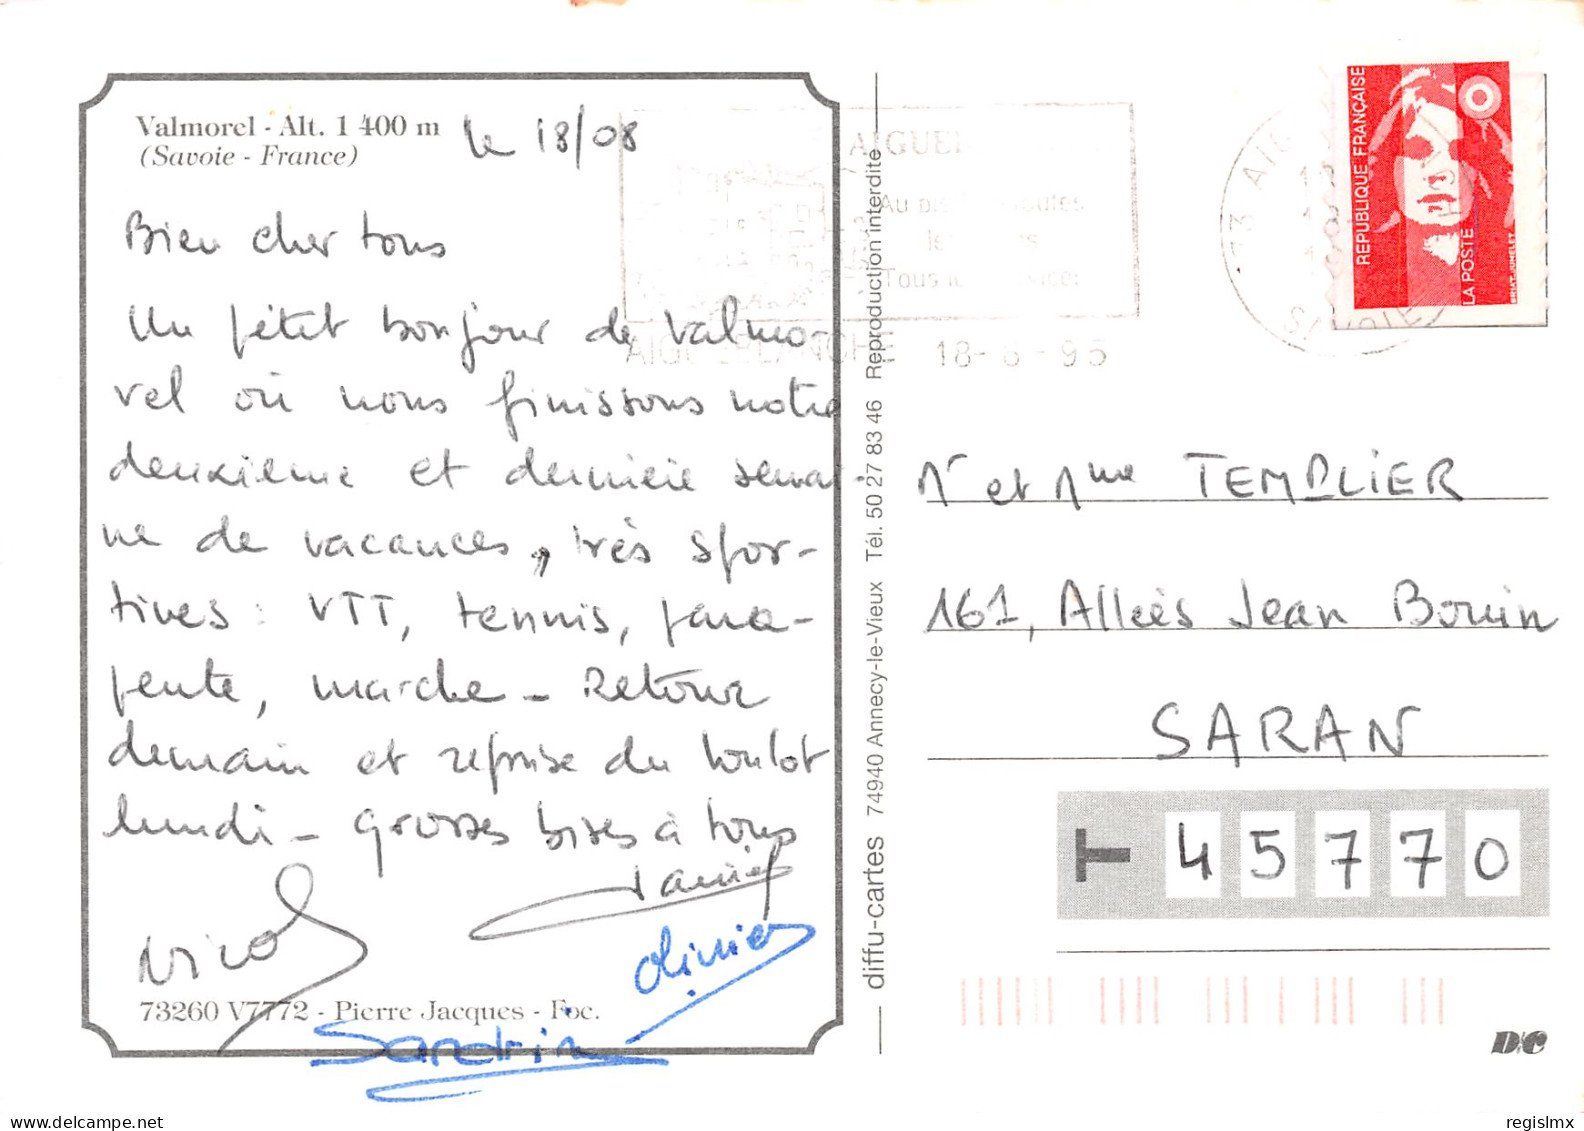 Valmorel - Alt. 1 400 m
(Savoie - France)
le 18/08
Bien cher tous
Un petit bonjour de Valmo-
rel où nous finissons notre
deuxième et dernière semai-
ne de vacances, très spor-
tives : VTT, tennis, para-
pente, marche - Retour
demain et reprise du boulot
lundi - grosses bises à tous
Daniel
Nicole
Olivier
Sandrine
73260 V7772 - Pierre Jacques - Foc.
diffu-cartes 74940 Annecy-le-Vieux Tél. 50 27 83 46 Reproduction interdite
Au
Tous
AIGUEBLANCHE 18-8-95
73 AIG
SAVOIE
RÉPUBLIQUE FRANÇAISE
LA POSTE
Mr et Mme TEMPLIER
161, Allées Jean Bouin
SARAN
45770
D/C
regislmx